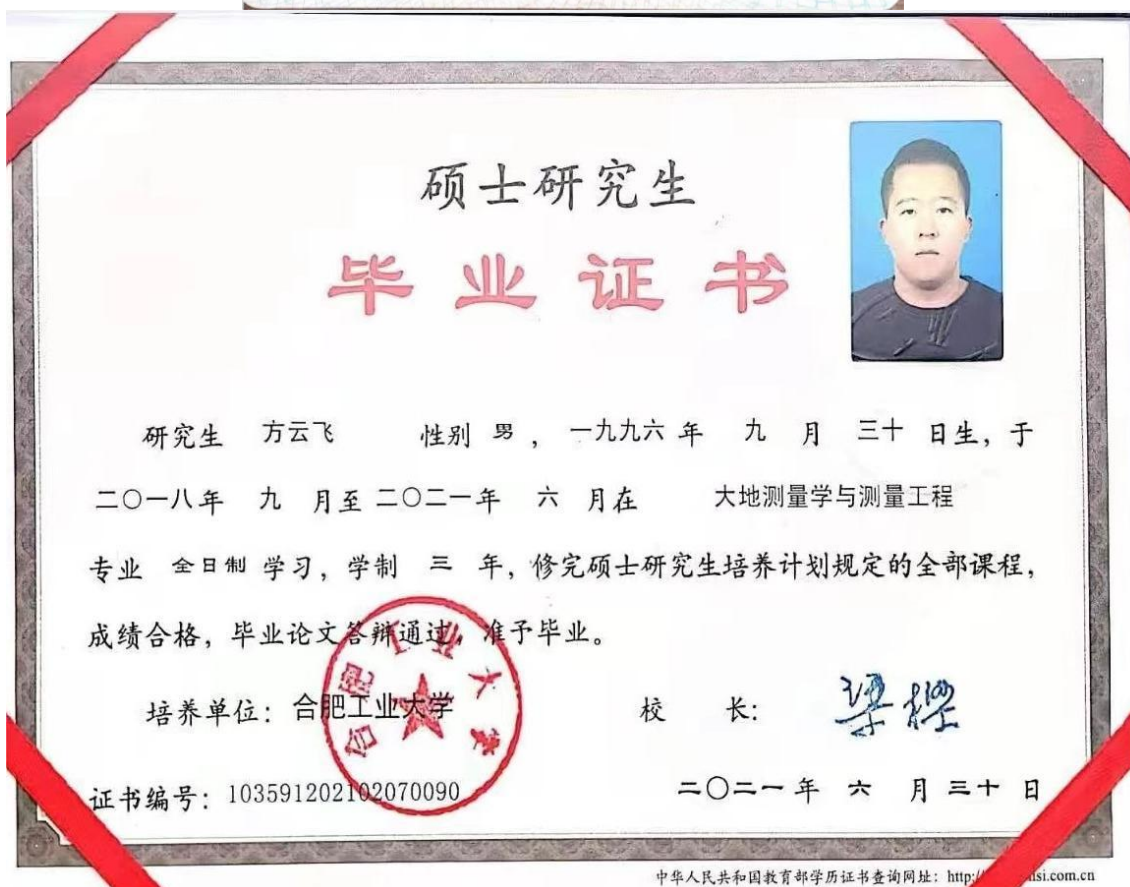 硕士研究生
毕业证书
研究生 方云飞 性别 男 , 一九九六 年 九 月 三十 日生, 于
二〇一八年 九 月至 二〇二一年 六 月在 大地测量学与测量工程
专业 全日制 学习, 学制 三 年, 修完硕士研究生培养计划规定的全部课程,
成绩合格, 毕业论文答辩通过, 准予毕业。
培养单位: 合肥工业大学 校 长: 梁樑
合肥工业大学
证书编号: 103591202102070090 二〇二一 年 六 月 三十 日
中华人民共和国教育部学历证书查询网址: http:/ si.com.cn